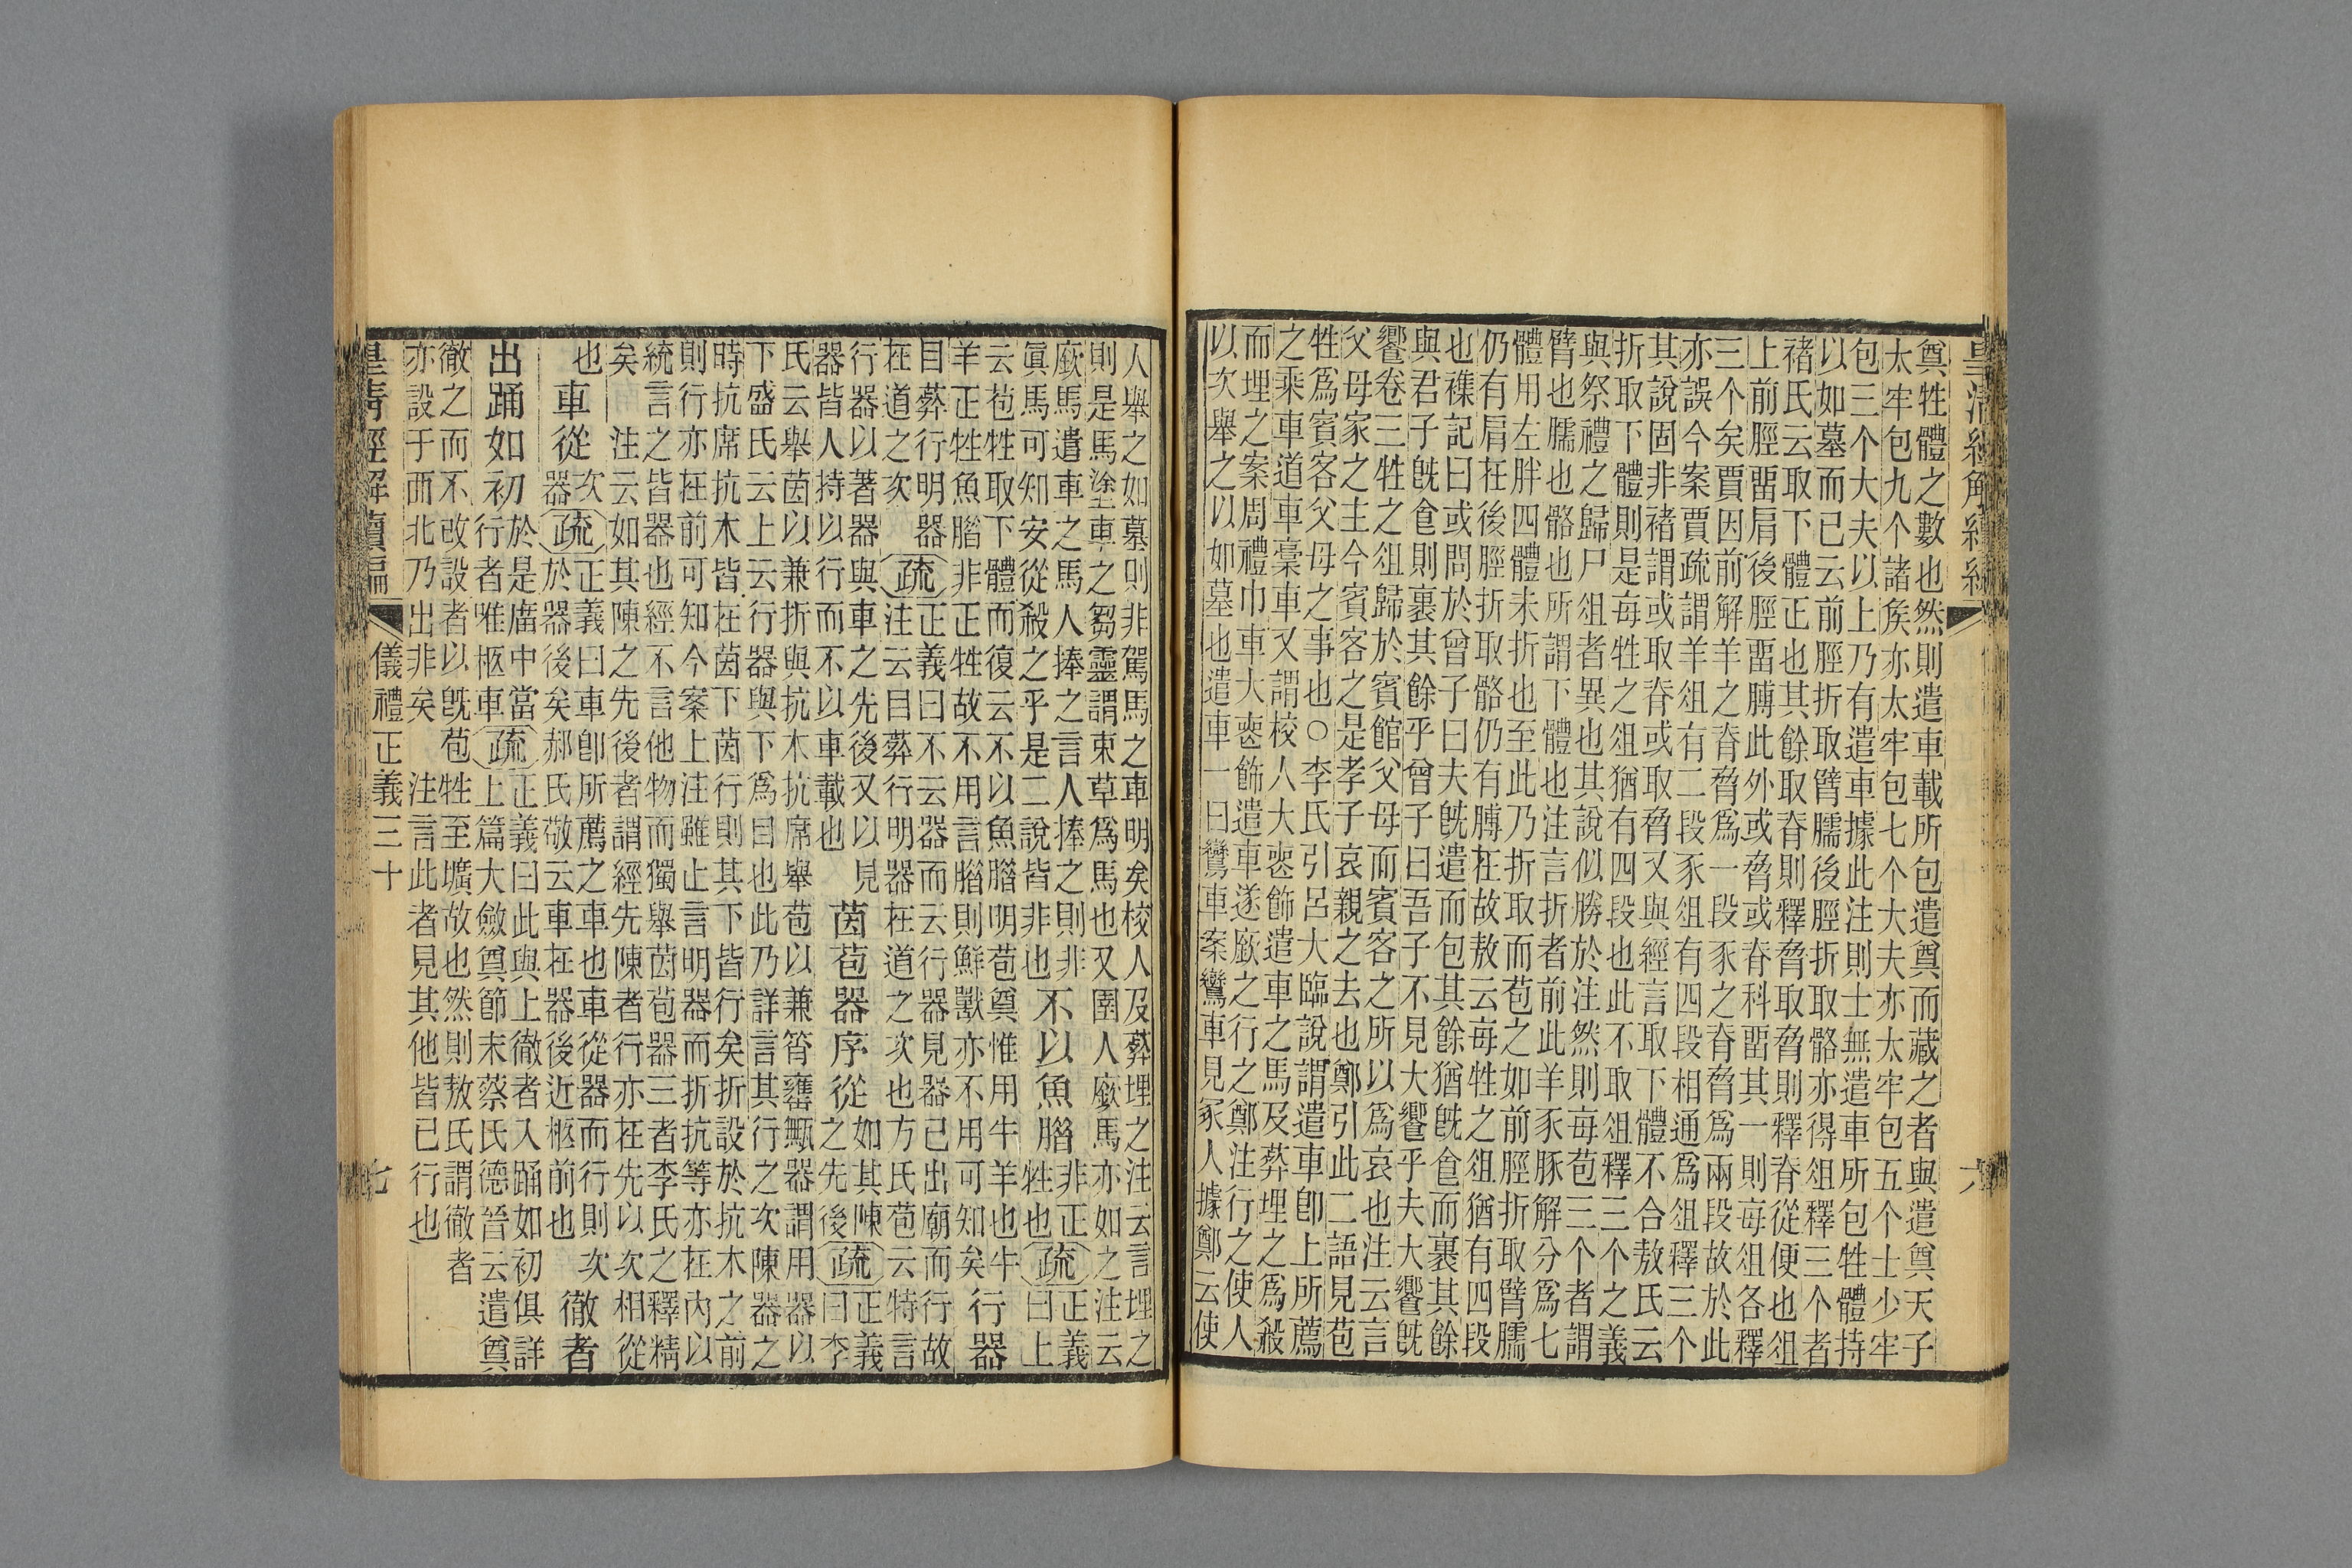 皇清經解續編 六
奠牲體之數也然則遣車載所包遣奠而藏之者與遣奠天子
太牢包九个諸矦亦太牢包七个大夫亦太牢包五个士少牢
包三个大夫以上乃有遣車據此注則士無遣車所包牲體持
以如墓而已云前脛折取臂臑後脛折取骼亦得俎釋三个者
褚氏云取下體正也其餘取脊則釋脅取脅則釋脊從便也俎
上前脛畱肩後脛畱膊此外或脅或脊科畱其一則每俎各釋
三个矣賈因前解羊之脊脅爲一段豕之脊脅爲兩段故於此
亦誤今案賈疏謂羊俎有二段豕俎有四段相通爲俎釋三个
其說固非褚謂或取脊或取脅又與經言取下體不合敖氏云
折取下體則是每牲之俎猶有四段也此不取俎釋三个之義
與祭禮之歸尸俎者異也其說似勝於注然則每苞三个者謂
臂也臑也骼也所謂下體也注言折者前此羊豕豚解分爲七
體用左胖四體未折也至此乃折取而苞之如前脛折取臂臑
仍有肩在後脛折取骼仍有膊在故敖云每牲之俎猶有四段
也襍記曰或問於曾子曰夫旣遣而包其餘猶旣食而裹其餘
與君子旣食則裹其餘乎曾子曰吾子不見大饗乎夫大饗旣
饗卷三牲之俎歸於賓館父母而賓客之所以爲哀也注云言
父母家之主今賓客之是孝子哀親之去也鄭引此二語見苞
牲爲賓客父母之事也○李氏引呂大臨說謂遣車卽上所薦
之乘車道車稾車又謂校人大喪飾遣車之馬及葬埋之爲殺
而埋之案周禮巾車大喪飾遣車遂廞之行之鄭注行之使人
以次舉之以如墓也遣車一曰鸞車案鸞車見冢人據鄭云使
人舉之如墓則非駕馬之車明矣校人及葬埋之注云言埋之
則是馬塗車之芻靈謂束草爲馬也又圉人廞馬亦如之注云
廞馬遣車之馬人捧之言人捧之則非
眞馬可知安從殺之乎是二說皆非也
不以魚腊
非正
牲也
疏
正義
曰上
云苞牲取下體而復云不以魚腊明苞奠惟用牛羊也牛
羊正牲魚腊非正牲故不用言腊則鮮獸亦不用可知矣
行器
目葬行明器
在道之次
疏
正義曰不云器而云行器見器已出廟而行故
注云目葬行明器在道之次也方氏苞云特言
行器以著器與車之先後又以見
器皆人持以行而不以車載也
茵苞器序從
如其陳
之先後
疏
正義
曰李
氏云舉茵以兼折與抗木抗席舉苞以兼筲罋甒器謂用器以
下盛氏云上云行器與下爲目也此乃詳言其行之次陳器之
時抗席抗木皆在茵下茵行則其下皆行矣折設於抗木之前
則行亦在前可知今案上注雖止言明器而折抗等亦在內以
統言之皆器也經不言他物而獨舉茵苞器三者李氏之釋精
矣 注云如其陳之先後者謂經先陳者行亦在先以次相從
也
車從
次
器
疏
正義曰車卽所薦之車也車從器而行則次
於器後矣郝氏敬云車在器後近柩前也
徹者
出踊如初
於是廟中當
行者唯柩車
疏
正義曰此與上徹者入踊如初俱詳
上篇大斂奠節末蔡氏德晉云遣奠
徹之而不改設者以旣苞牲至壙故也然則敖氏謂徹者
亦設于西北乃出非矣 注言此者見其他皆已行也
皇清經解續編 儀禮正義三十 七